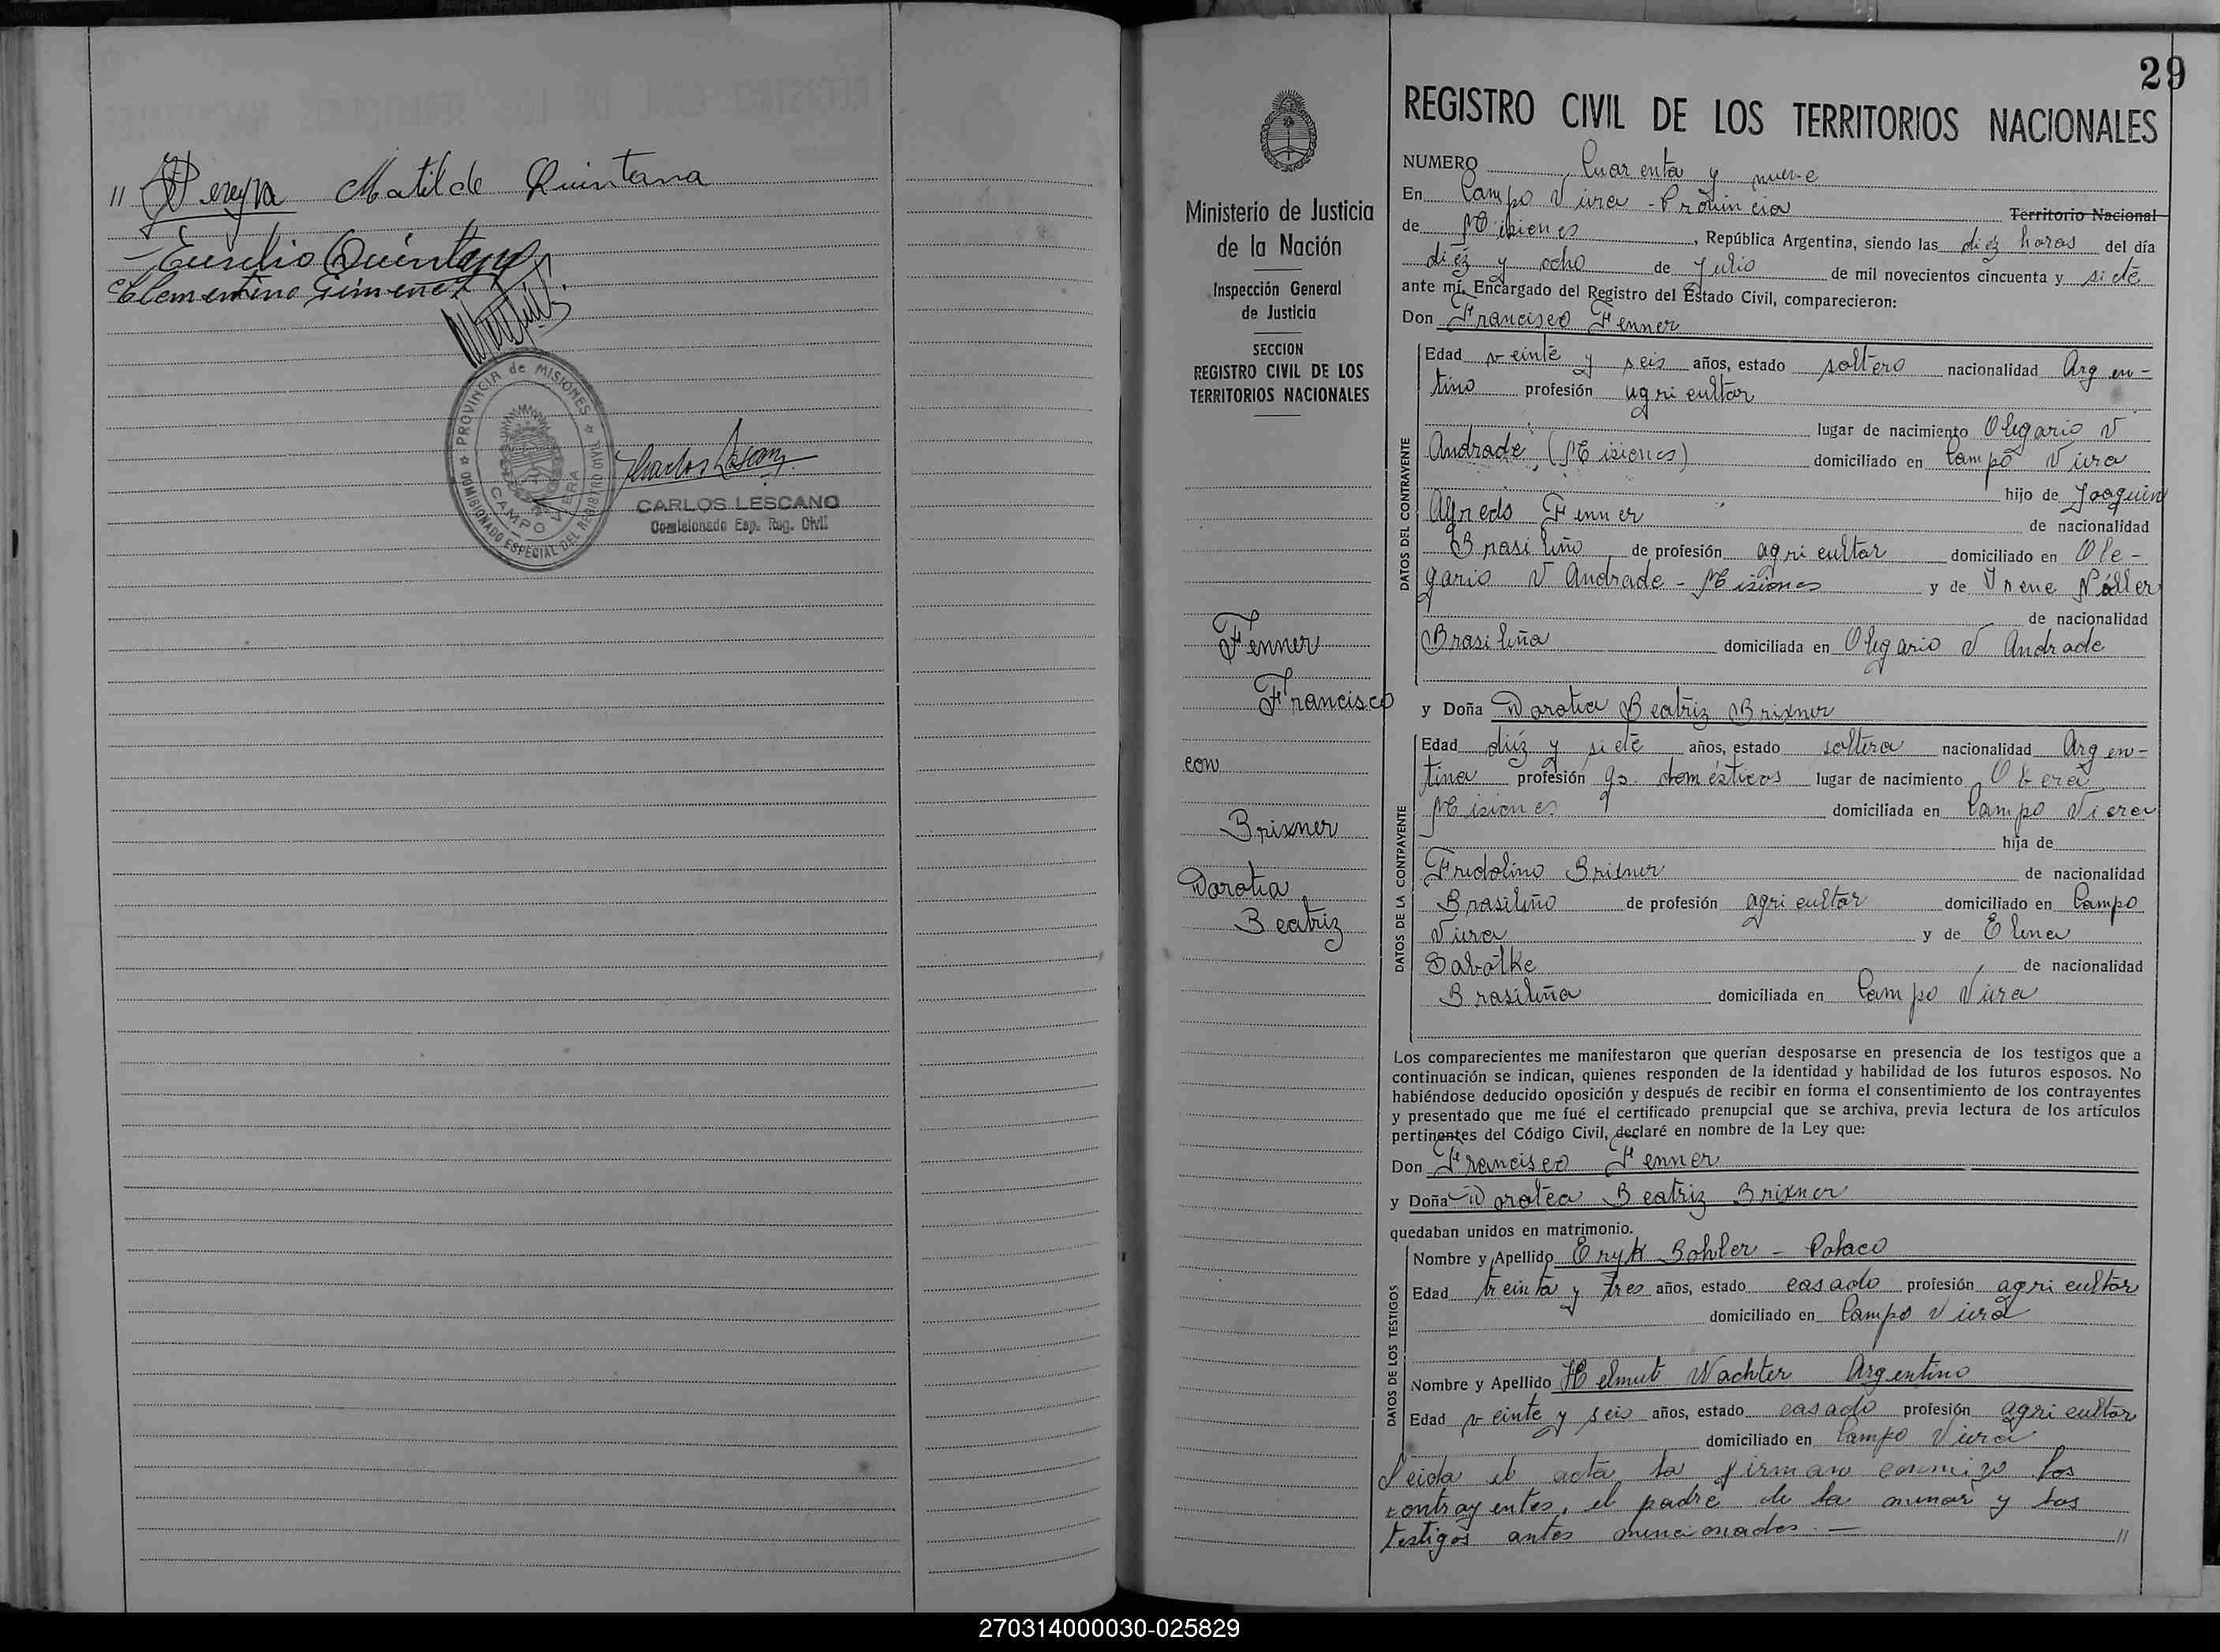 " Pereyra Matilde Quintana
Eusebio Quintana
Clementino Gimenez
PROVINCIA de MISIONES
COMISIONADO ESPECIAL DEL REGISTRO CIVIL
CAMPO VIERA
Carlos Lescano
CARLOS LESCANO
Comisionado Esp. Reg. Civil
29
Ministerio de Justicia
de la Nación
Inspección General
de Justicia
SECCION
REGISTRO CIVIL DE LOS
TERRITORIOS NACIONALES
Fenner
Francisco
con
Brixner
Dorotea
Beatriz
REGISTRO CIVIL DE LOS TERRITORIOS NACIONALES
NUMERO Cuarenta y nueve
En Campo Viera - Provincia Territorio Nacional
de Misiones, República Argentina, siendo las diez horas del día
diez y ocho de Julio de mil novecientos cincuenta y siete
ante mí, Encargado del Registro del Estado Civil, comparecieron:
Don Francisco Fenner
DATOS DEL CONTRAYENTE
Edad veinte y seis años, estado soltero nacionalidad Argen-
tino profesión agricultor
lugar de nacimiento Olegario V
Andrade, (Misiones) domiciliado en Campo Viera
hijo de Joaquin
Alfredo Fenner de nacionalidad
Brasileño de profesión agricultor domiciliado en Ole-
gario V Andrade - Misiones y de Irene Nöller
de nacionalidad
Brasileña domiciliada en Olegario V Andrade
y Doña Dorotea Beatriz Brixner
DATOS DE LA CONTRAYENTE
Edad diez y siete años, estado soltera nacionalidad Argen-
tina profesión qs. domésticos lugar de nacimiento Oberá
Misiones domiciliada en Campo Viera
hija de
Fridolino Brixner de nacionalidad
Brasileño de profesión agricultor domiciliado en Campo
Viera y de Elena
Sabatke de nacionalidad
Brasileña domiciliada en Campo Viera
Los comparecientes me manifestaron que querían desposarse en presencia de los testigos que a
continuación se indican, quienes responden de la identidad y habilidad de los futuros esposos. No
habiéndose deducido oposición y después de recibir en forma el consentimiento de los contrayentes
y presentado que me fué el certificado prenupcial que se archiva, previa lectura de los artículos
pertinentes del Código Civil, declaré en nombre de la Ley que:
Don Francisco Fenner
y Doña Dorotea Beatriz Brixner
quedaban unidos en matrimonio.
DATOS DE LOS TESTIGOS
Nombre y Apellido Eryk Bohler - Polaco
Edad treinta y tres años, estado casado profesión agricultor
domiciliado en Campo Viera
Nombre y Apellido Helmut Wachter Argentino
Edad veinte y seis años, estado casado profesión agricultor
domiciliado en Campo Viera
Leida el acta la firman conmigo los
contrayentes, el padre de la menor y los
testigos antes mencionados. — "
270314000030-025829